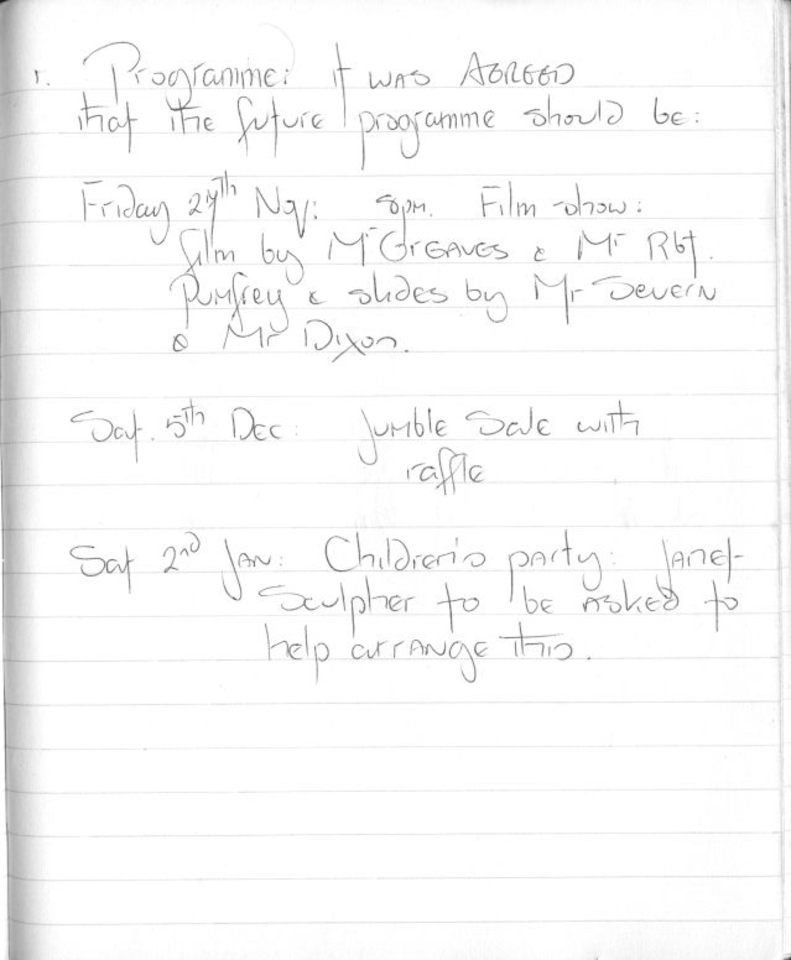 1. Programme: it WAS AGREED
that the future programme should be:
Friday 27th Nov: 8pm. Film show:
film by Mr GREAVES & Mr Rbt.
Pumfrey & slides by Mr Severn
& Mr Dixon.
Sat. 5th Dec: Jumble Sale with
raffle
Sat 2nd Jan: Children's party: Janet
Sculpher to be asked to
help arrange this.